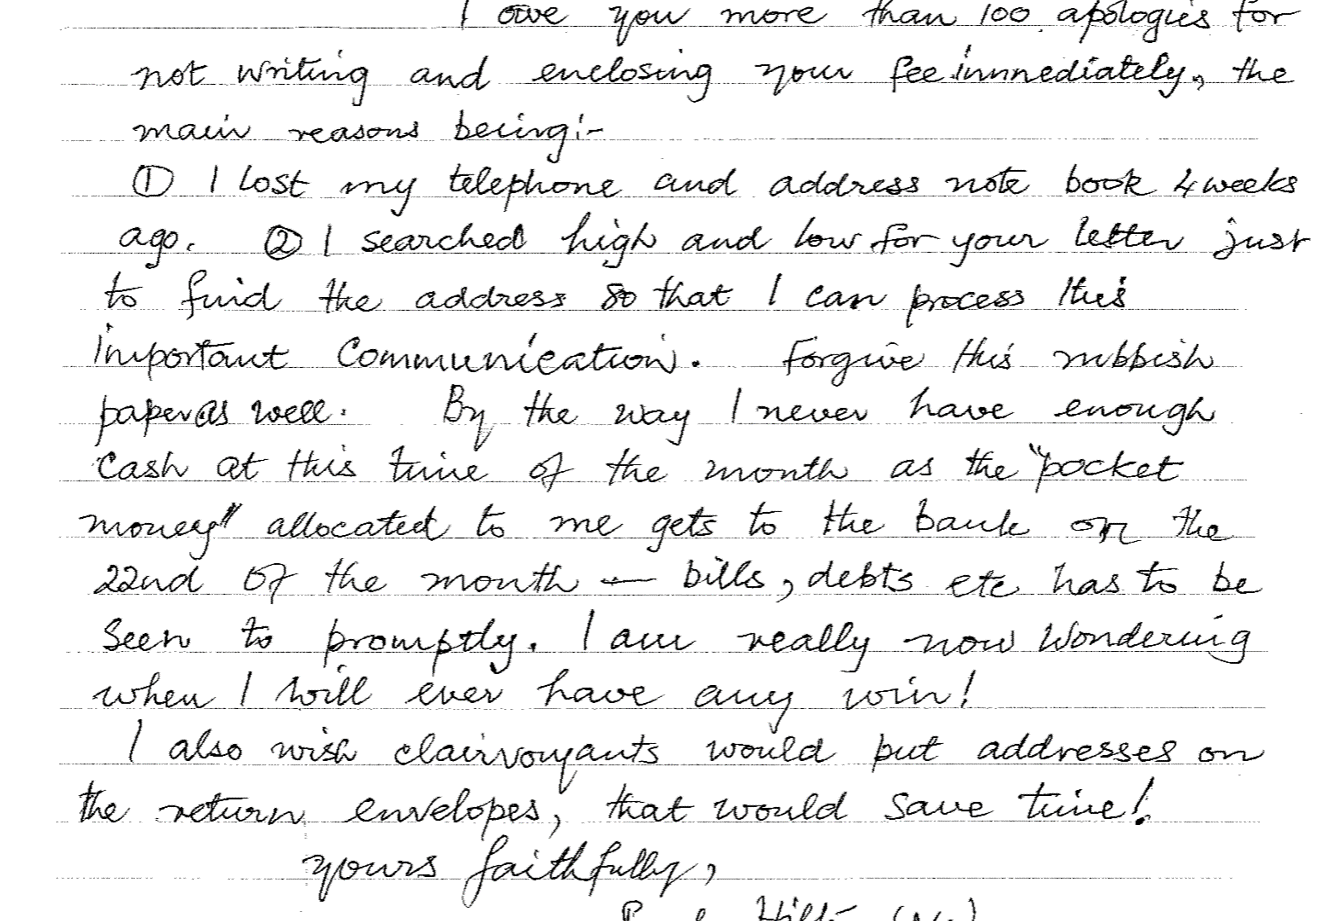 I owe you more than 100 apologies for
not writing and enclosing your fee immediately, the
main reasons being:-
① I lost my telephone and address note book 4 weeks
ago. ② I searched high and low for your letter just
to find the address so that I can process this
important Communication. Forgive this rubbish
paper as well. By the way I never have enough
Cash at this time of the month as the "pocket
money" allocated to me gets to the bank on the
22nd of the month — bills, debts etc has to be
Seen to promptly. I am really now Wondering
when I will ever have any win!
I also wish clairvoyants would put addresses on
the return envelopes, that would save time!
Yours faithfully,